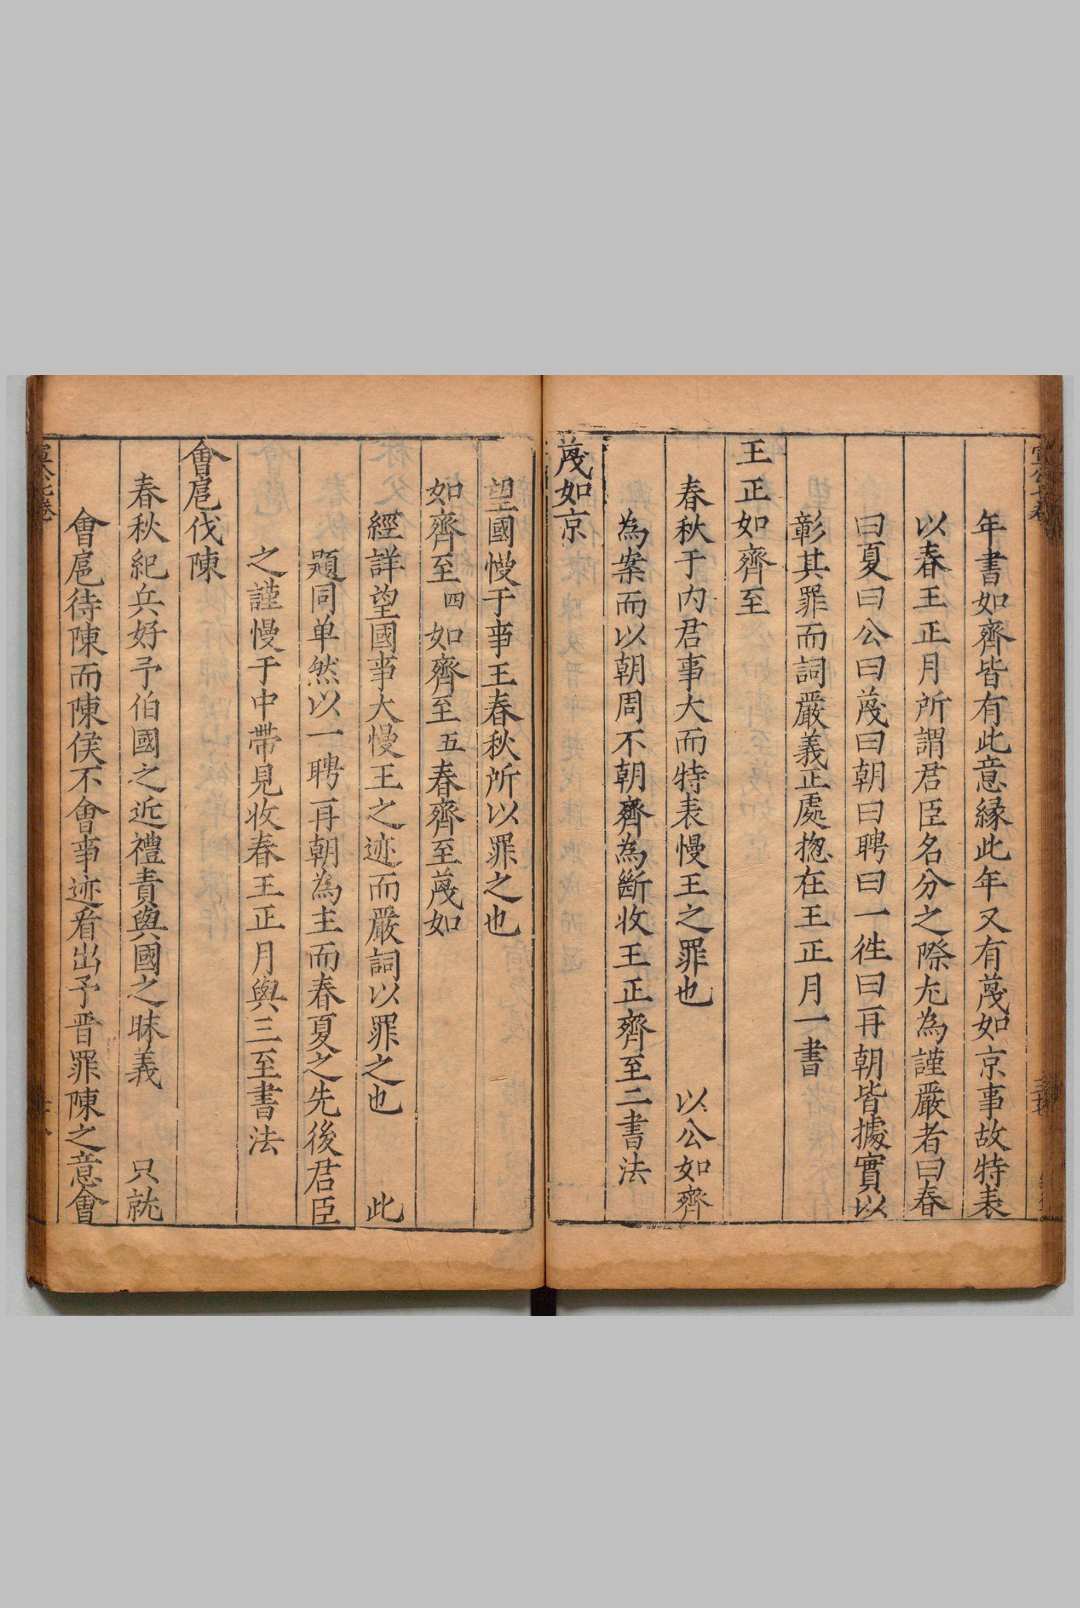 年書如齊皆有此意緣此年又有蔑如京事故特表
以春王正月所謂君臣名分之際尤為謹嚴者曰春
曰夏曰公曰蔑曰朝曰聘曰一徃曰再朝皆據實以
彰其罪而詞嚴義正處揔在王正月一書
王正如齊至
春秋于内君事大而特表慢王之罪也 以公如齊
為案而以朝周不朝齊為斷收王正齊至二書法
蔑如京
望國慢于事王春秋所以罪之也
如齊至四 如齊至五春齊至蔑如
經詳望國事大慢王之迹而嚴詞以罪之也 此
題同单然以一聘再朝為主而春夏之先後君臣
之謹慢于中帶見收春王正月與三至書法
會扈伐陳
春秋紀兵好予伯國之近禮責與國之昧義 只就
會扈待陳而陳侯不會事迹看出予晋罪陳之意會